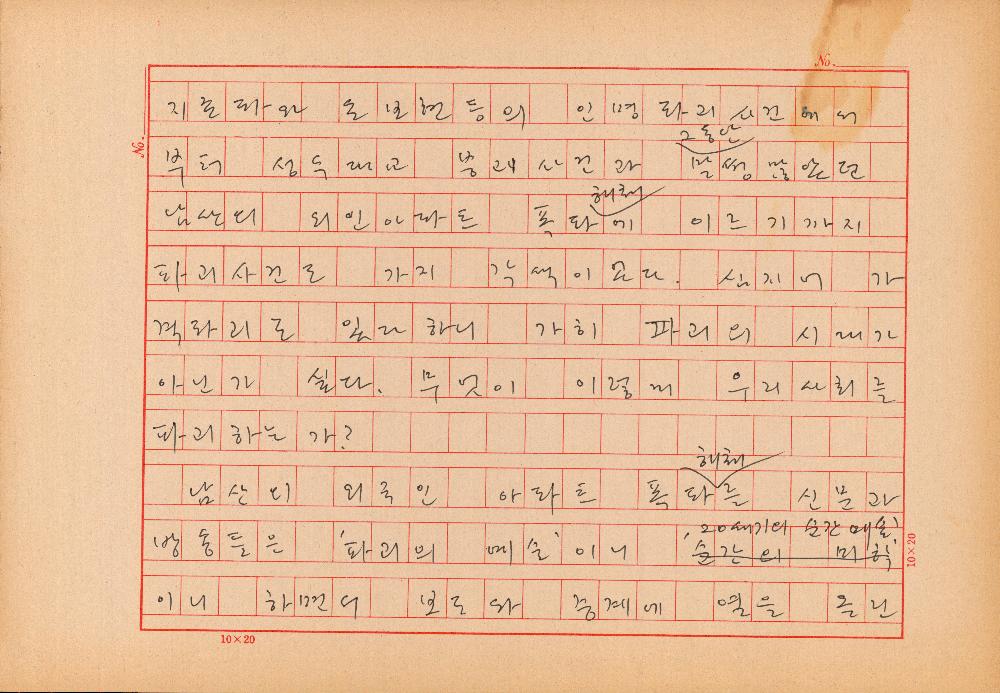 No.
No.
지존파와 온보현 등의 인명 파괴 사건에서
그동안
부터 성수대교 붕괴사건과 말썽 많았던
해체
남산의 외인아파트 폭파에 이르기까지
파괴사건도 가지 각색이었다. 심지어 가
격파괴도 있다 하니 가히 파괴의 시대가
아닌가 싶다. 무엇이 이렇게 우리 사회를
파괴하는가?
해체
남산의 외국인 아파트 폭파를 신문과
'20세기의 순간예술'
방송들은 '파괴의 예술'이니 순간의 미학
이니 하면서 보도와 중계에 열을 올린
10×20
10×20